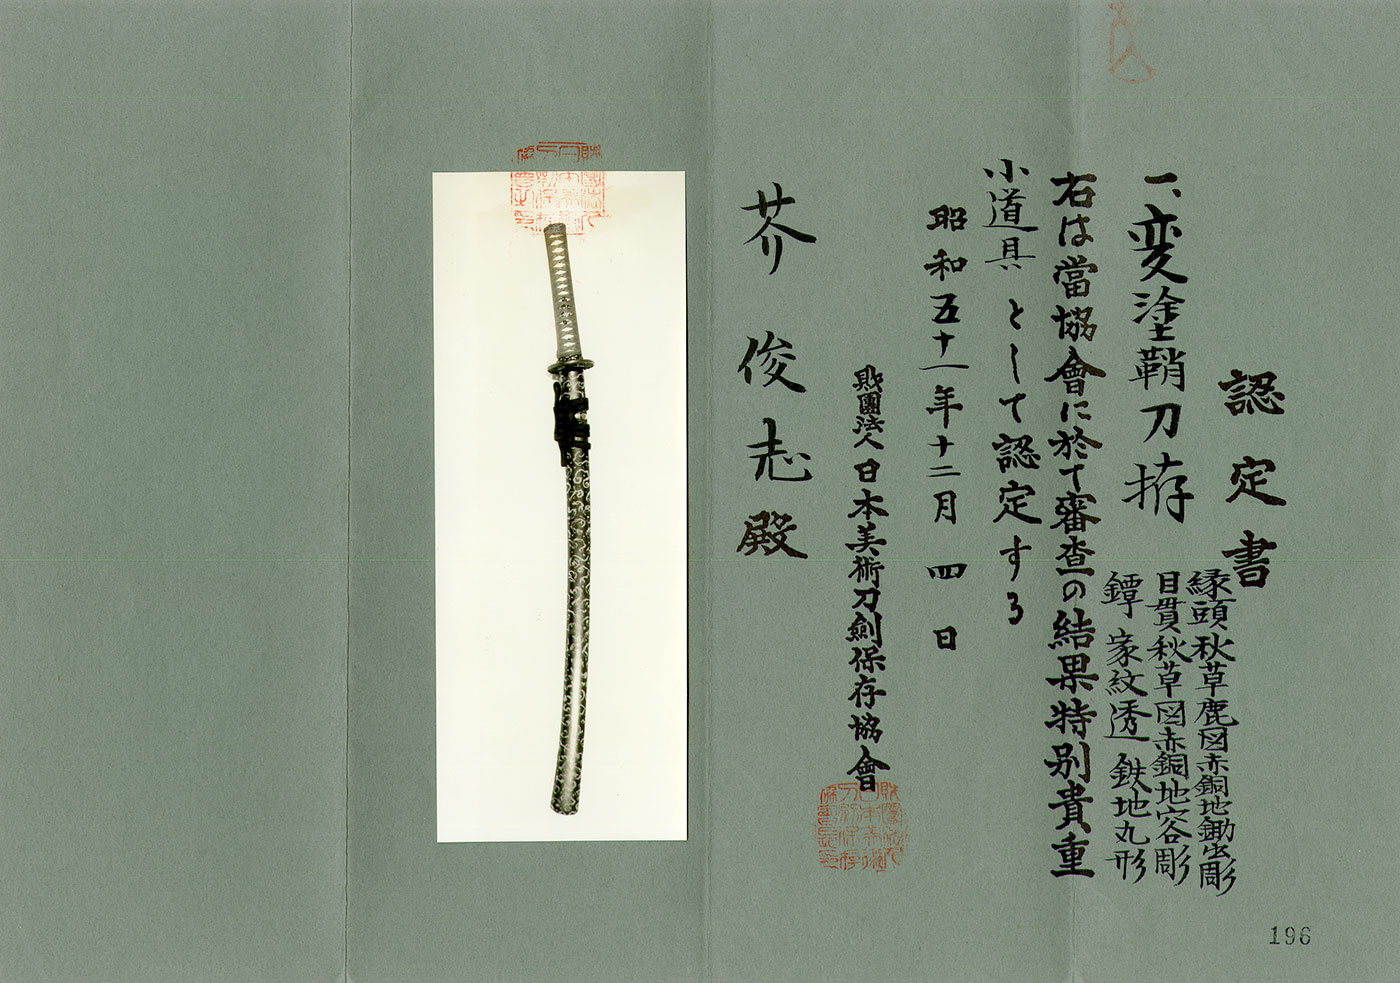 認定書
一、変塗鞘刀拵
縁頭秋草鹿図赤銅地鋤出彫
目貫秋草図赤銅地容彫
鐔家紋透鉄地丸形
右は當協會に於て審査の結果特別貴重
小道具として認定する
昭和五十一年十二月四日
財團法人日本美術刀劍保存協會
芥俊志殿
196